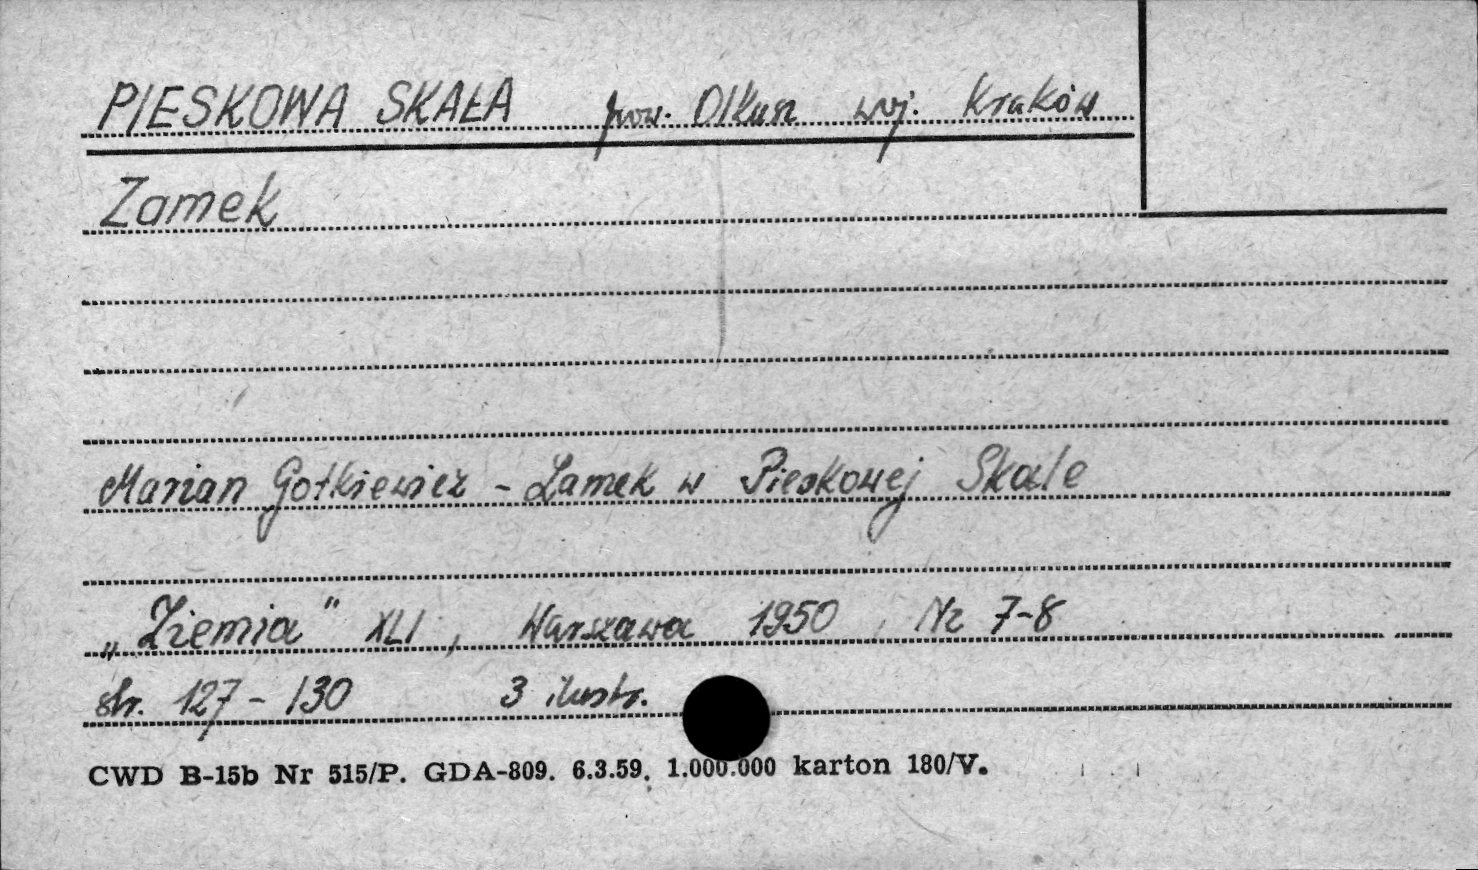 PIESKOWA SKAŁA pow. Olkusz woj. Kraków
Zamek
Marian Gotkiewicz - Zamek w Pieskowej Skale
„Ziemia" XLI, Warszawa 1950 Nr 7-8
str. 127-130 3 ilustr.
CWD B-15b Nr 515/P. GDA-809. 6.3.59. 1.000.000 karton 180/V.